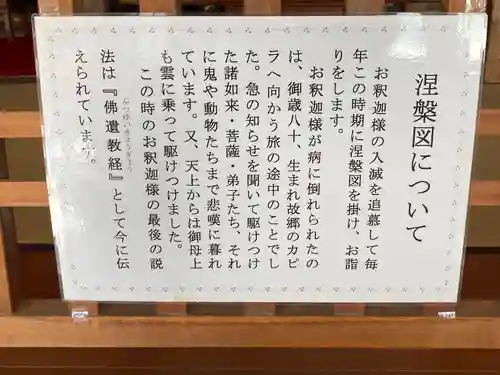 涅槃図について
お釈迦様の入滅を追慕して毎
年この時期に涅槃図を掛け、お詣
りをします。
お釈迦様が病に倒れられたの
は、御歳八十、生まれ故郷のカピ
ラへ向かう旅の途中のことでし
た。急の知らせを聞いて駆けつけ
た諸如来・菩薩・弟子たち、それ
に鬼や動物たちまで悲嘆に暮れ
ています。又、天上からは御母上
も雲に乗って駆けつけました。
この時のお釈迦様の最後の説
法は『佛遺教経』として今に伝
えられています。